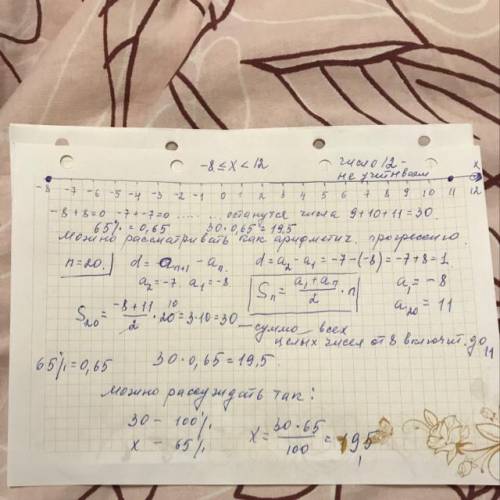 -8 ≤ x < 12 число 12 - не учитываем
-8 -7 -6 -5 -4 -3 -2 -1 0 1 2 3 4 5 6 7 8 9 10 11 12 x
-8+8=0 -7+7=0 ..... ... останутся числа 9+10+11=30.
65% = 0,65 30·0,65=19,5
Можно рассматривать как арифметич. прогрессию
n=20. d = a_{n+1} - a_n. d = a_2 - a_1 = -7-(-8) = -7+8=1
a_2=-7 a_1=-8 S_n = (a_1+a_n)/2 · n a_1 = -8
S_20 = (-8+11)/2 · 20 = 3·10=30 a_20 = 11
10
— сумма всех
целых чисел от 8 включит. до 11
65%=0,65 30·0,65=19,5.
можно рассуждать так:
30 - 100%
x - 65% x = (30·65)/100 = 19,5